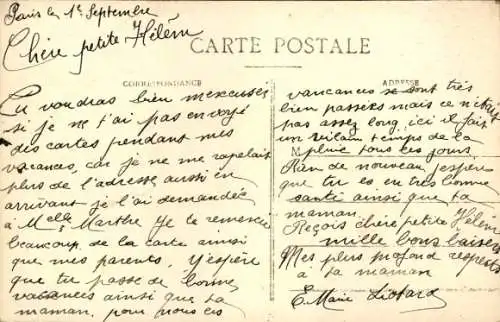 Paris le 1er Septembre
Chère petite Hélèn
CARTE POSTALE
CORRESPONDANCE
ADRESSE
Tu voudras bien mexcuser
si je ne t'ai pas envoyé
des cartes pendant mes
vacances, car je ne me rapelait
plus de l'adresse aussi en
arrivant je l'ai demandée
à Melle Marthe Je te remercie
beaucoup de la carte ainsi
que mes parents. J'espère
que tu passe de bonne
vacances ainsi que ta
maman, pour nous ces
vancances se sont très
bien passées mais ce n'était
pas assez long, ici il fait
un vilain temps de la
pluie tous ces jours.
Rien de nouveau j'espère
que tu es en très bonne
santé ainsi que ta
maman.
Reçois chère petite Hélèn
mille bons baisers
Mes plus profond respects
à ta maman
E. Marie